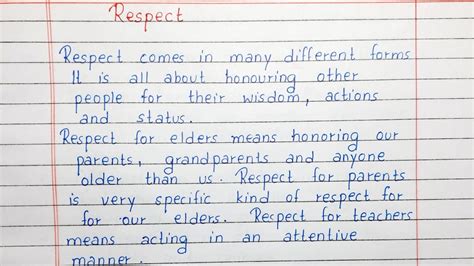 Respect
Respect comes in many different forms
It is all about honouring other
people for their wisdom, actions
and status.
Respect for elders means honoring our
parents, grandparents and anyone
older than us. Respect for parents
is very specific kind of respect for
for our elders. Respect for teachers
means acting in an attentive
manner.